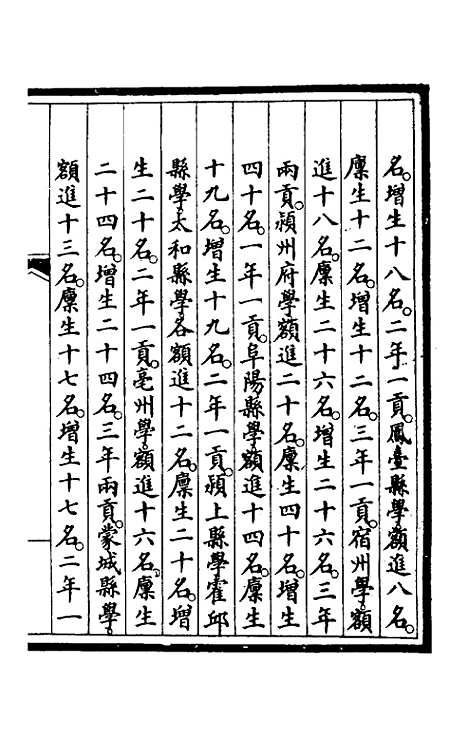 名。增生十八名。二年一貢。鳳臺縣學。額進八名。
廩生十二名。增生十二名。三年一貢。宿州學。額
進十八名。廩生二十六名。增生二十六名。三年
兩貢。潁州府學。額進二十名。廩生四十名。增生
四十名。一年一貢。阜陽縣學。額進十四名。廩生
十九名。增生十九名。二年一貢。潁上縣學。霍邱
縣學。太和縣學。各額進十二名。廩生二十名。增
生二十名。二年一貢。亳州學。額進十六名。廩生
二十四名。增生二十四名。三年兩貢。蒙城縣學。
額進十三名。廩生十七名。增生十七名。二年一